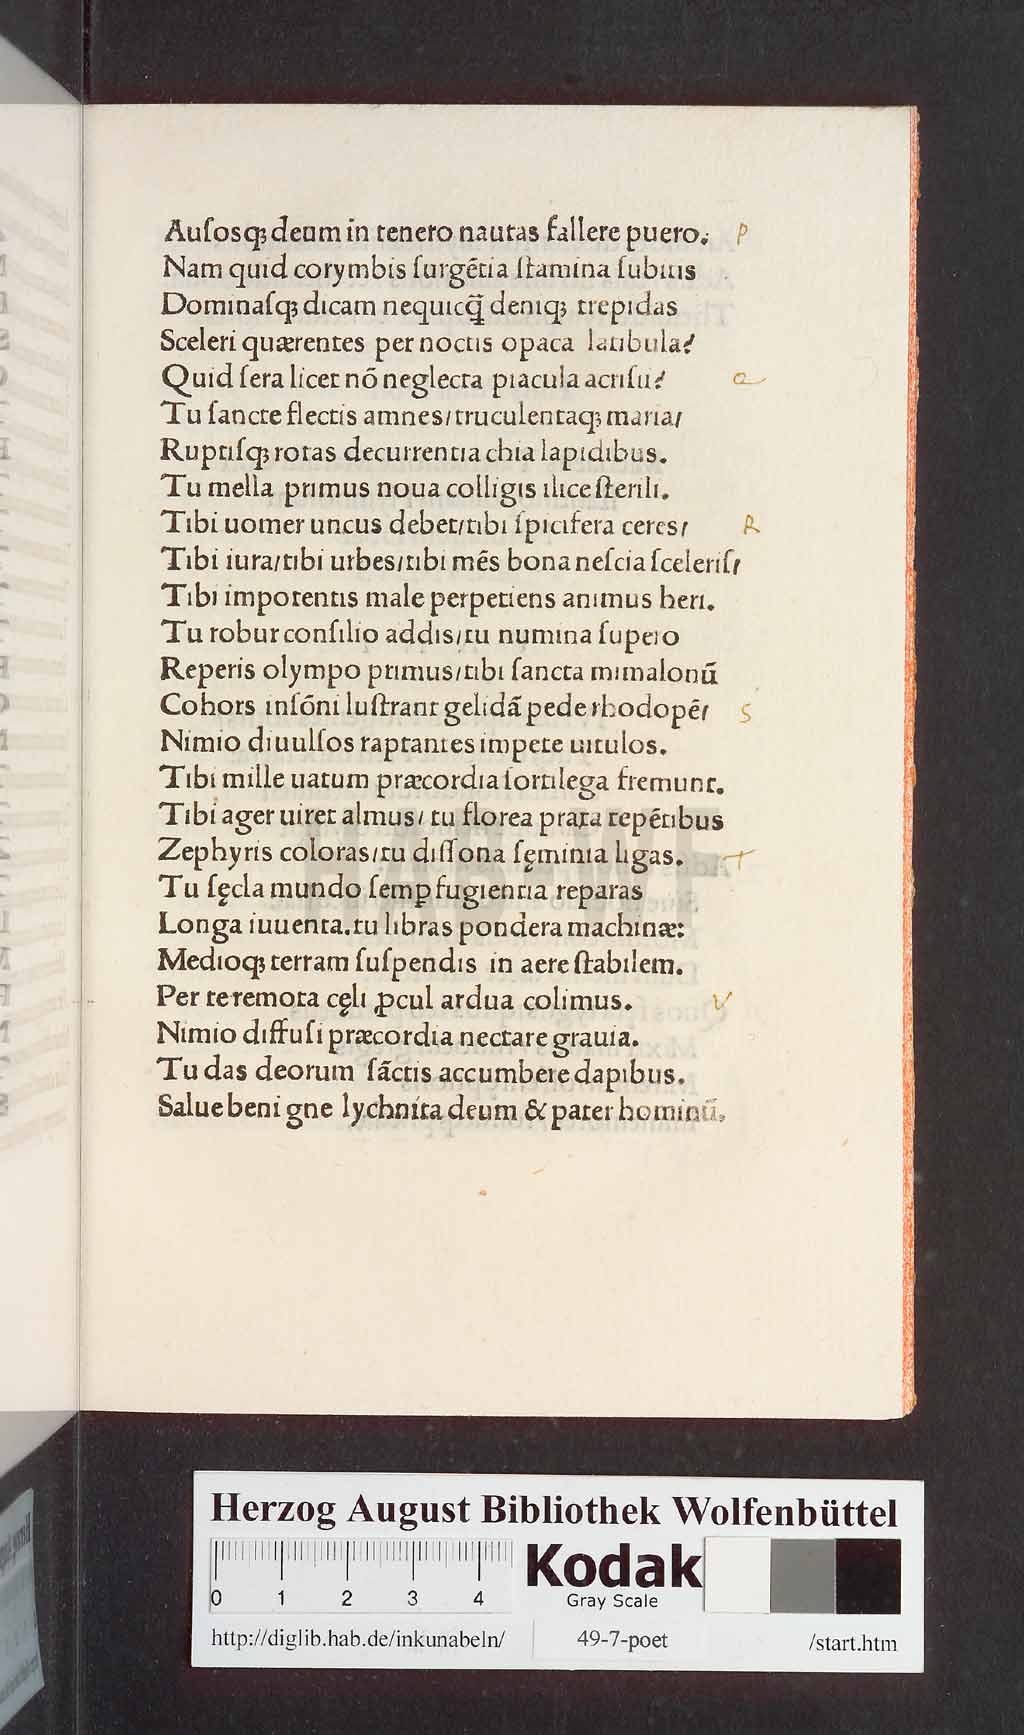 Auſosqꝫ deum in tenero nautas fallere puero. P
Nam quid corymbis ſurgētia ſtamina ſubitis
Dominaſqꝫ dicam nequicq̃ deniqꝫ trepidas
Sceleri quærentes per noctis opaca latibula?
Quid ſera licet nō neglecta piacula acriſii? Q
Tu ſancte flectis amnes/truculentaqꝫ maria/
Ruptiſqꝫ rotas decurrentia chia lapidibus.
Tu mella primus noua colligis ilice ſterili.
Tibi uomer uncus debet/tibi ſpicifera ceres/ R
Tibi iura/tibi urbes/tibi mēs bona neſcia ſceleriſ/
Tibi impotentis male perpetiens animus heri.
Tu robur conſilio addis/tu numina ſupero
Reperis olympo primus/tibi ſancta mimalonū
Cohors inſōni luſtrant gelidā pede rhodopē/ S
Nimio diuulſos raptantes impete uitulos.
Tibi mille uatum præcordia ſortilega fremunt.
Tibi ager uiret almus/ tu florea prata tepētibus
Zephyris coloras/tu diſſona ſęminia ligas. T
Tu ſęcla mundo ſemꝑ fugientia reparas
Longa iuuenta.tu libras pondera machinæ:
Medioqꝫ terram ſuſpendis in aere ſtabilem.
Per te remota cęli ꝓcul ardua colimus. V
Nimio diffuſi præcordia nectare grauia.
Tu das deorum ſāctis accumbere dapibus.
Salue beni gne lychnita deum & pater hominū.
HAB WF
Herzog August Bibliothek Wolfenbüttel
0 1 2 3 4
Kodak
Gray Scale
http://diglib.hab.de/inkunabeln/ 49-7-poet /start.htm